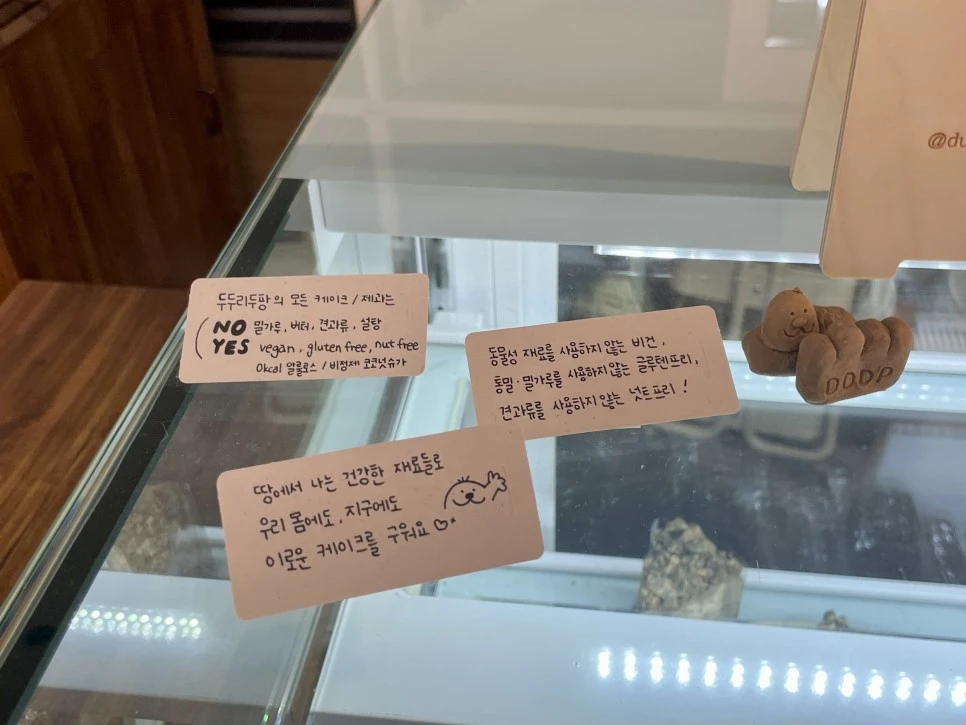 두두리두팡의 모든 케이크 / 제과는
NO 밀가루, 버터, 견과류, 설탕
YES vegan, gluten free, nut free
0kcal 알룰로스 / 비정제 코코넛슈가
동물성 재료를 사용하지 않는 비건,
통밀·밀가루를 사용하지 않는 글루텐프리,
견과류를 사용하지 않는 넛트프리!
땅에서 나는 건강한 재료들로
우리 몸에도, 지구에도
이로운 케이크를 구워요
DDDP
@du